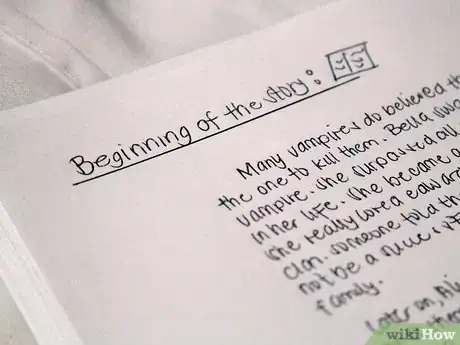 Beginning of the story:
Many vampires do believed th
the one to kill them. Bella
vampire. she surpassed all
in her life. she became a
she really loved edward
clan. someone told th
not be a
family.
Later on,
wikiHow